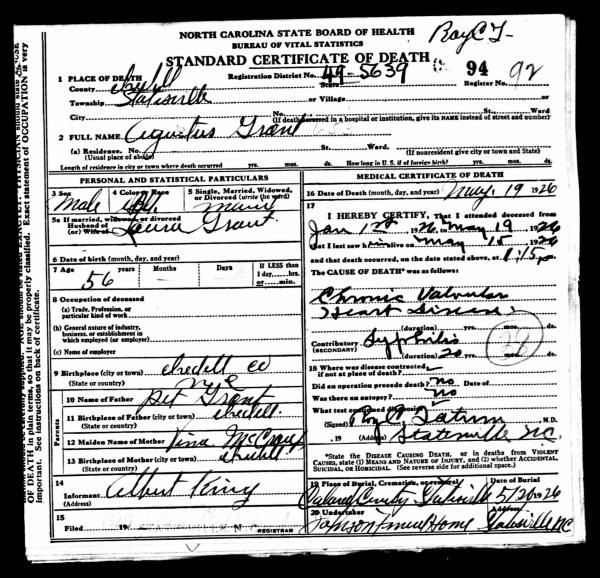 NORTH CAROLINA STATE BOARD OF HEALTH
BUREAU OF VITAL STATISTICS
STANDARD CERTIFICATE OF DEATH
94 92
1 PLACE OF DEATH
Registration District No. 49-5639
County Iredell State Register No.
Township Statesville or Village
City No. St. Ward
(If death occurred in a hospital or institution, give its NAME instead of street and number)
2 FULL NAME Agustus Grant
(a) Residence. No. St. Ward.
(Usual place of abode) (If nonresident give city or town and State)
Length of residence in city or town where death occurred yrs. mos. ds. How long in U. S. if of foreign birth? yrs. mos. ds.
PERSONAL AND STATISTICAL PARTICULARS
3 Sex 4 Color or Race 5 Single, Married, Widowed, or Divorced (write the word)
Male
5a If married, widowed, or divorced
Husband of
(or) Wife of Laura Grant
6 Date of birth (month, day, and year)
7 Age 56 years Months Days If LESS than 1 day, hrs. or min.
8 Occupation of deceased
(a) Trade, Profession, or particular kind of work
(b) General nature of industry, business, or establishment in which employed (or employer)
(c) Name of employer
9 Birthplace (city or town) Iredell co
(State or country) N C
Parents
10 Name of Father Grant
11 Birthplace of Father (city or town) Iredell.
(State or country)
12 Maiden Name of Mother
13 Birthplace of Mother (city or town) Iredell
(State or country)
14
Informant Albert King
(Address)
15
Filed 19 STATESVILLE N. C. REGISTRAR
MEDICAL CERTIFICATE OF DEATH
16 Date of Death (month, day, and year) May. 19 1926
17
I HEREBY CERTIFY, That I attended deceased from
Jan 1st 1926, to May 19 1926
that I last saw h alive on May 15 1926
and that death occurred, on the date stated above, at 8:15 p
The CAUSE OF DEATH* was as follows:
Chronic Valvular
Heart Disease
(duration) yrs. mos. ds.
Contributory Syphilis
(SECONDARY)
(duration) 20 yrs. mos. ds.
18 Where was disease contracted, if not at place of death?
Did an operation precede death? no Date of
Was there an autopsy? no
What test confirmed diagnosis?
(Signed) Tatum M.D.
, 19 (Address) Statesville NC.
*State the DISEASE CAUSING DEATH, or in deaths from VIOLENT
CAUSES, state (1) MEANS AND NATURE OF INJURY, and (2) whether ACCIDENTAL,
SUICIDAL, or HOMICIDAL. (See reverse side for additional space.)
19 Place of Burial, Cremation, or removal Date of Burial
Statesville 5/20 1926
20 Undertaker Address
Johnson Funeral Home Statesville NC
OF DEATH in plain terms, so that it may be properly classified. Exact statement of OCCUPATION is very
important. See instructions on back of certificate.